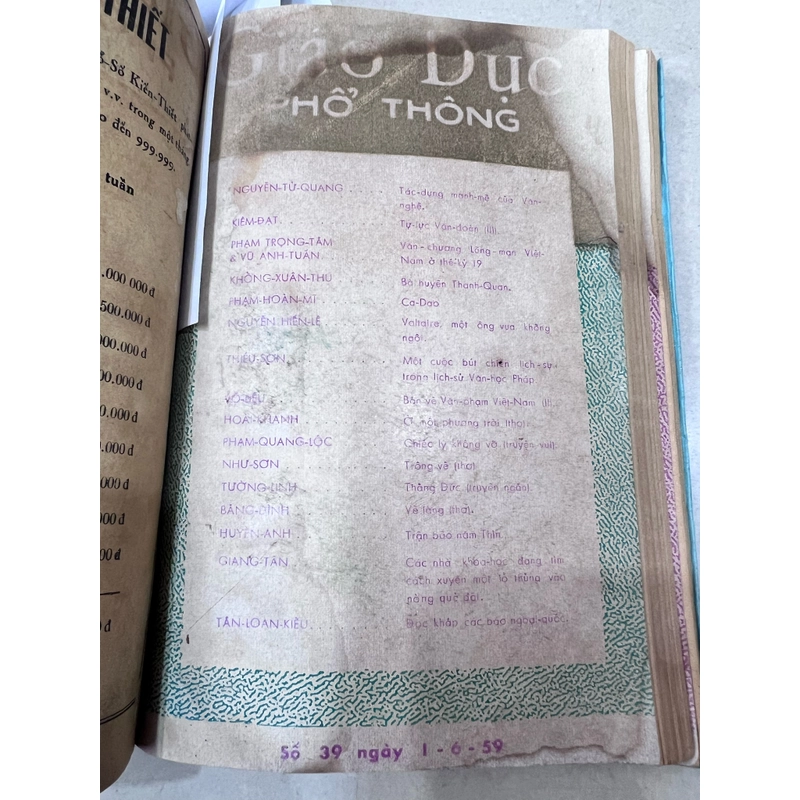 THIẾT
Số Kiến-Thiết
v.v. trong một tháng
đến 999.999.
tuần
.000 000 đ
500.000 đ
000.000 đ
00.000 đ
0.000 đ
.000 đ
000 đ
000 đ
00 đ
Giáo Dục
PHỔ THÔNG
NGUYỄN-TỬ-QUANG ..... Tác-dụng mạnh-mẽ của Văn-
nghệ.
KIÊM-ĐẠT ..... Tự-lực Văn-đoàn (II).
PHẠM TRỌNG-TÂM Văn-chương Lãng-mạn Việt-
& VŨ ANH-TUẤN ..... Nam ở thế-kỷ 19
KHỔNG-XUÂN-THU Bà huyện Thanh-Quan.
PHẠM-HOÀN-MĨ ..... Ca-Dao
NGUYỄN HIẾN-LÊ ..... Voltaire, một ông vua không
ngôi.
THIẾU-SƠN ..... Một cuộc bút chiến lịch-sự
trong lịch-sử Văn-học Pháp
Bàn về Văn-phạm Việt-Nam
Ở một phương trời (thơ).
PHẠM-QUANG-LỘC ..... Chiếc ly không vỡ (truyện vui).
NHƯ-SƠN ..... Trông vẽ (thơ).
TƯỜNG-LINH ..... Thằng Đức (truyện ngắn).
BẰNG-ĐÌNH ..... Về làng (thơ).
HUYỀN-ANH ..... Trận bão năm Thìn.
GIANG-TÂN ..... Các nhà khoa-học đang tìm
cách xuyên một lỗ thủng vào
nòng quả đất.
TÂN-LOAN-KIỀU ..... Đọc khắp các báo ngoại-quốc.
Số 39 ngày 1 - 6 - 59